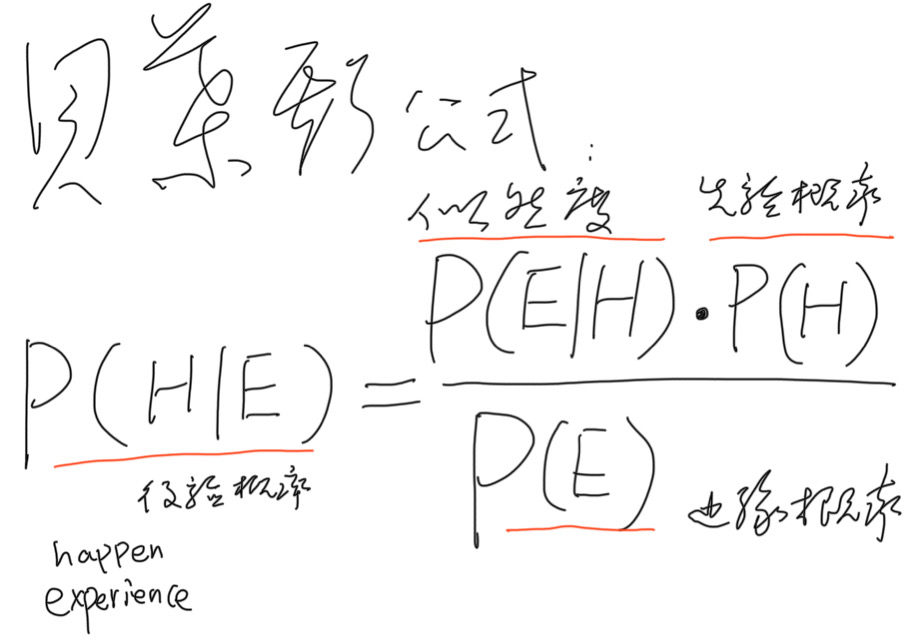 贝叶斯公式:
似然度 先验概率
P(H|E) = P(E|H)·P(H) / P(E)
后验概率
边缘概率
happen
experience